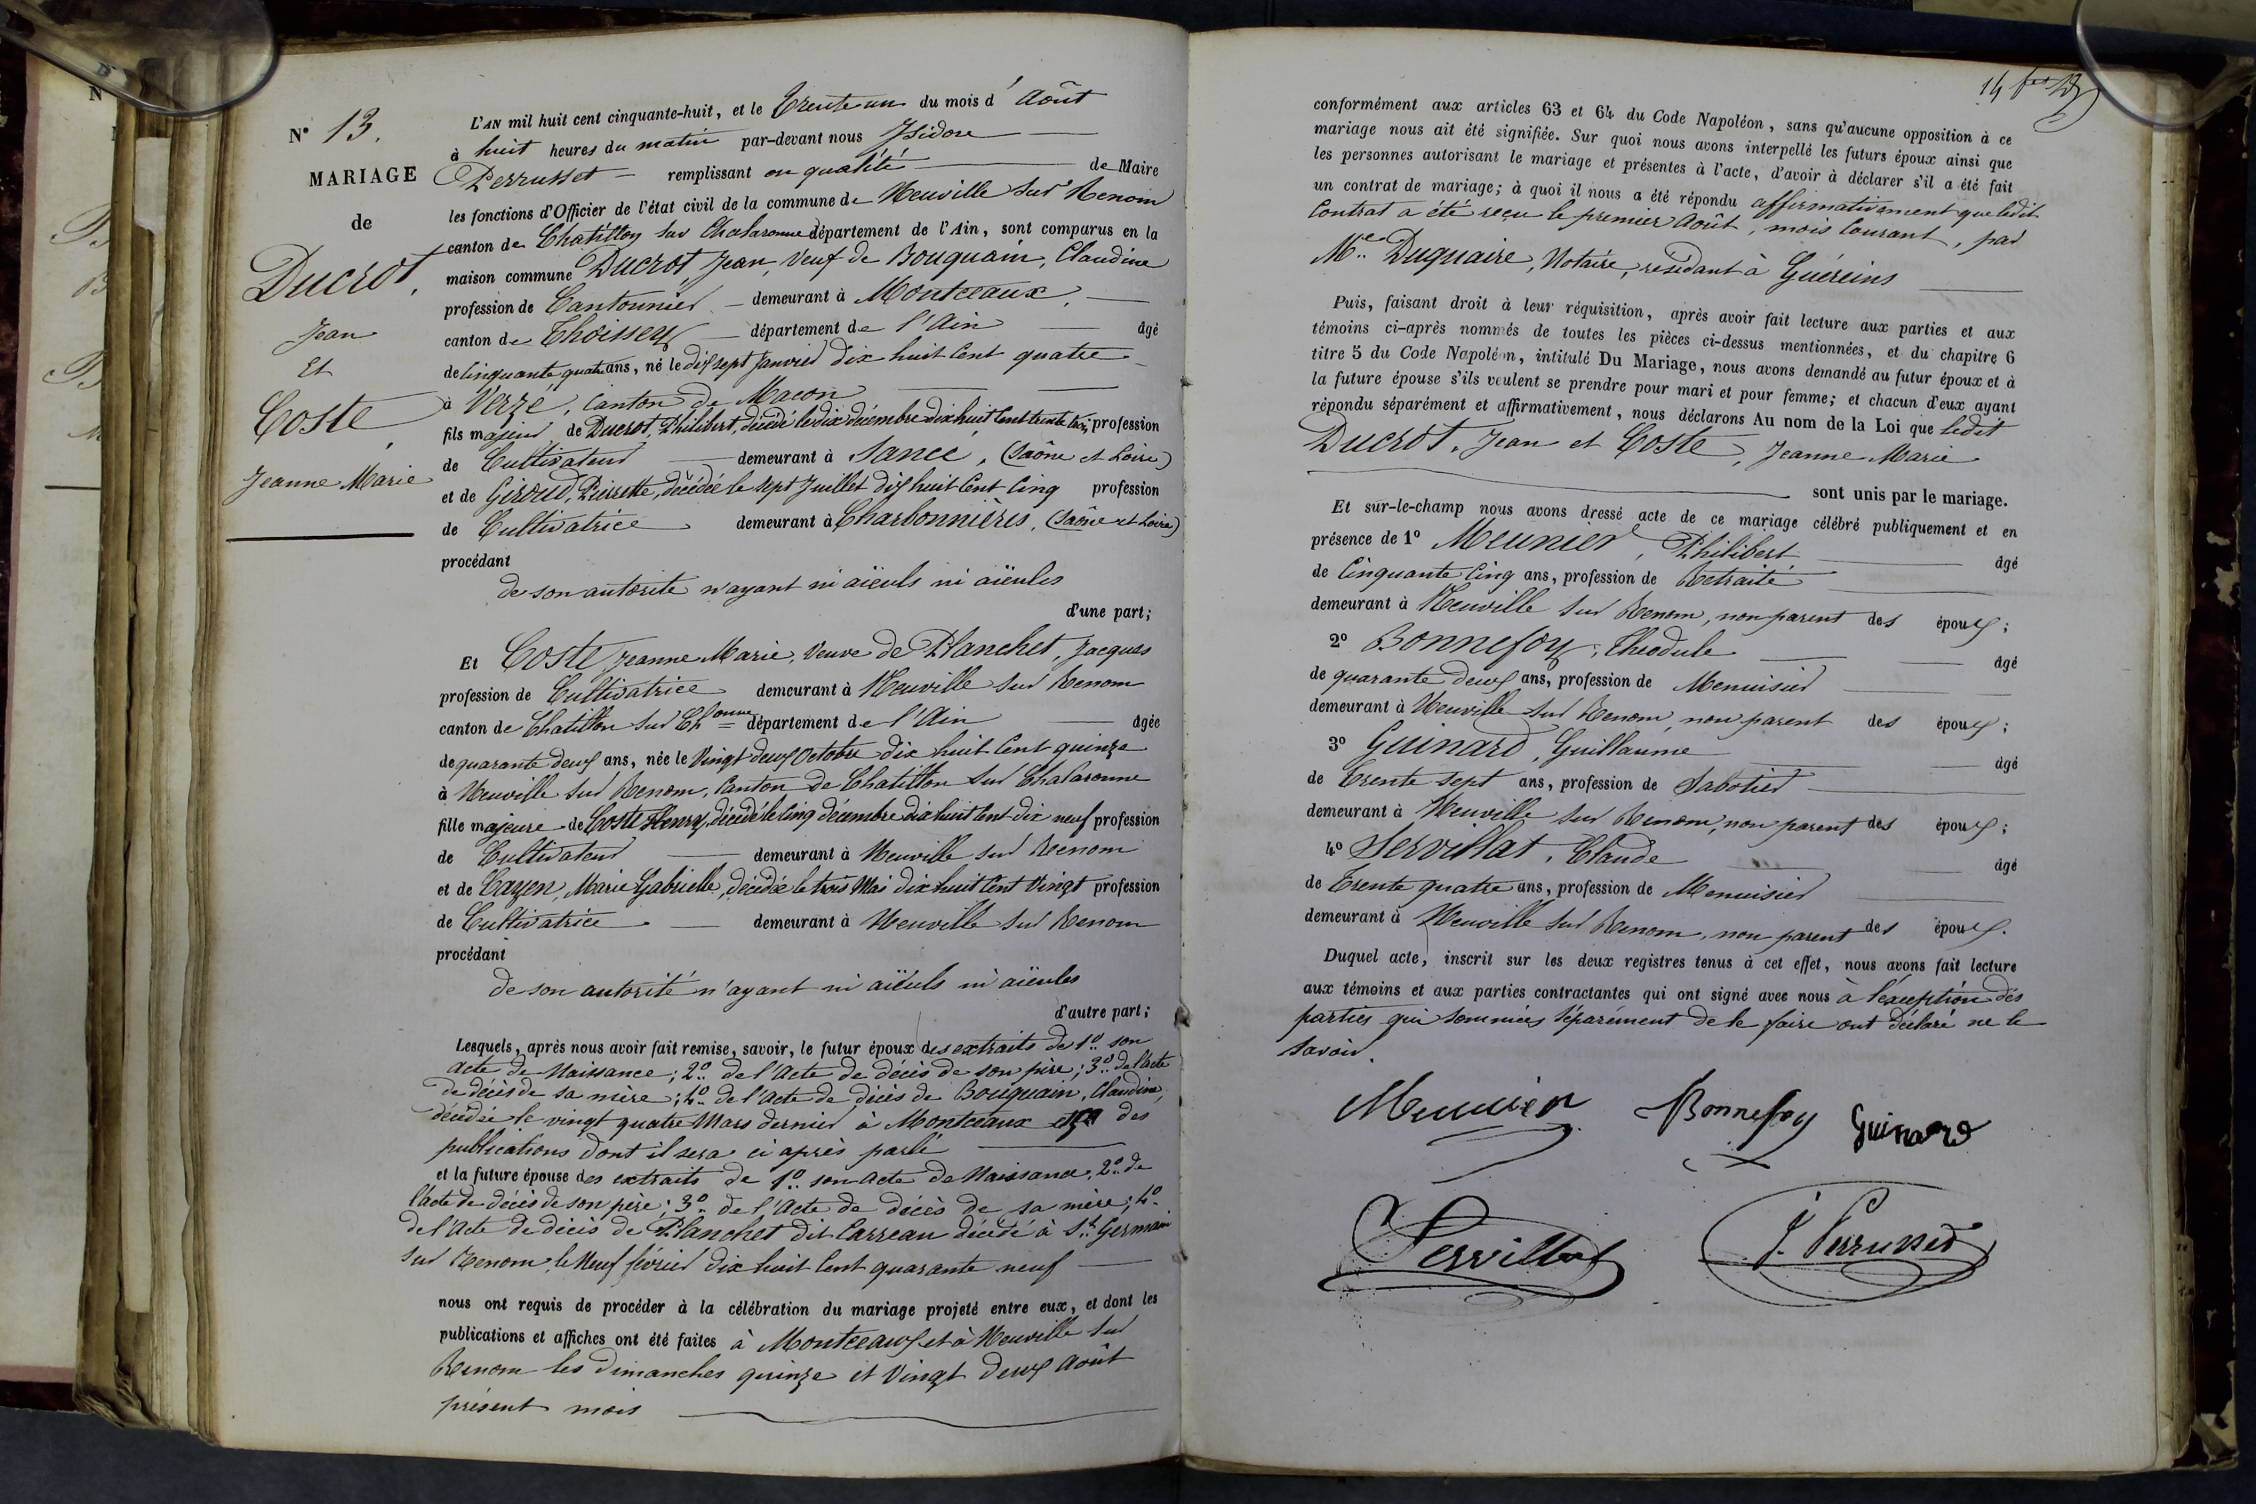 N° 13.
MARIAGE
de
Ducrot,
Jean
Et
Coste,
Jeanne Marie
L'AN mil huit cent cinquante-huit, et le Trente un du mois d'Août
à huit heures du matin par-devant nous Isidore
Perrusset remplissant en qualité de Maire
les fonctions d'Officier de l'état civil de la commune de Neuville sur Renom
canton de Chatillon sur Chalaronne département de l'Ain, sont comparus en la
maison commune Ducrot Jean, Veuf de Bouquain, Claudine
profession de Cantonnier demeurant à Montceaux,
canton de Thoissey département de l'Ain âgé
de Cinquante quatre ans, né le dix sept Janvier dix huit Cent quatre
à Verzé, Canton de Macon
fils majeur de Ducrot, Philibert, décédé le dix décembre dix huit Cent trente six, profession
de Cultivateur demeurant à Sancé, (Saône et Loire)
et de Giroud, Pierrette, décédée le sept Juillet dix huit Cent Cinq profession
de Cultivatrice demeurant à Charbonnières, (Saône et Loire)
procédant
de son autorité n'ayant ni aïeuls ni aïeules
d'une part;
Et Coste Jeanne Marie, Veuve de Planchet, Jacques
profession de Cultivatrice demeurant à Neuville sur Renom
canton de Chatillon sur Ch onne département de l'Ain âgée
de quarante deux ans, née le Vingt deux Octobre dix huit Cent quinze
à Neuville sur Renom, Canton de Chatillon sur Chalaronne
fille majeure de Coste Henry, décédé le Cinq décembre dix huit Cent dix neuf profession
de Cultivateur demeurant à Neuville sur Renom
et de Cazen, Marie Gabrielle, décédée le trois Mai dix huit Cent Vingt profession
de Cultivatrice demeurant à Neuville sur Renom
procédant
de son autorité n'ayant ni aïeuls ni aïeules
d'autre part;
Lesquels, après nous avoir fait remise, savoir, le futur époux des extraits de 1° son
acte de Naissance; 2° de l'Acte de décès de son père; 3° de l'acte
de décès de sa mère; 4° de l'Acte de décès de Bouquain, Claudine,
décédée le vingt quatre Mars dernier à Montceaux des
publications dont il sera ci après parlé
et la future épouse des extraits de 1° son Acte de Naissance, 2° de
l'acte de décès de son père; 3° de l'Acte de décès de sa mère; 4°
de l'Acte de décès de Planchet dit Carreau décédé à St Germain
sur Renom le Neuf février dix huit Cent quarante neuf
nous ont requis de procéder à la célébration du mariage projeté entre eux, et dont les
publications et affiches ont été faites à Montceaux et à Neuville sur
Renom les Dimanches quinze et Vingt Deux Août
présent mois
conformément aux articles 63 et 64 du Code Napoléon, sans qu'aucune opposition à ce
mariage nous ait été signifiée. Sur quoi nous avons interpellé les futurs époux ainsi que
les personnes autorisant le mariage et présentes à l'acte, d'avoir à déclarer s'il a été fait
un contrat de mariage; à quoi il nous a été répondu affirmativement que ledit
Contrat a été reçu le premier Août, mois Courant, par
Me Duquaire, Notaire, résidant à Guéreins
Puis, faisant droit à leur réquisition, après avoir fait lecture aux parties et aux
témoins ci-après nommés de toutes les pièces ci-dessus mentionnées, et du chapitre 6
titre 5 du Code Napoléon, intitulé Du Mariage, nous avons demandé au futur époux et à
la future épouse s'ils veulent se prendre pour mari et pour femme; et chacun d'eux ayant
répondu séparément et affirmativement, nous déclarons Au nom de la Loi que ledit
Ducrot, Jean et Coste, Jeanne Marie
sont unis par le mariage.
Et sur-le-champ nous avons dressé acte de ce mariage célébré publiquement et en
présence de 1° Meunier, Philibert âgé
de Cinquante Cinq ans, profession de Retraité
demeurant à Neuville sur Renom, non parent des époux;
2° Bonnefoy, Théodule âgé
de quarante deux ans, profession de Menuisier
demeurant à Neuville sur Renom, non parent des époux;
3° Guinard, Guillaume âgé
de Trente sept ans, profession de Sabotier
demeurant à Neuville sur Renom, non parent des époux;
4° Servillat, Claude âgé
de Trente quatre ans, profession de Menuisier
demeurant à Neuville sur Renom, non parent des époux.
Duquel acte, inscrit sur les deux registres tenus à cet effet, nous avons fait lecture
aux témoins et aux parties contractantes qui ont signé avec nous à l'exception des
parties qui sommées séparément de le faire ont déclaré ne le
savoir.
Meunier Bonnefoy Guinard
Servillat J. Perrusset